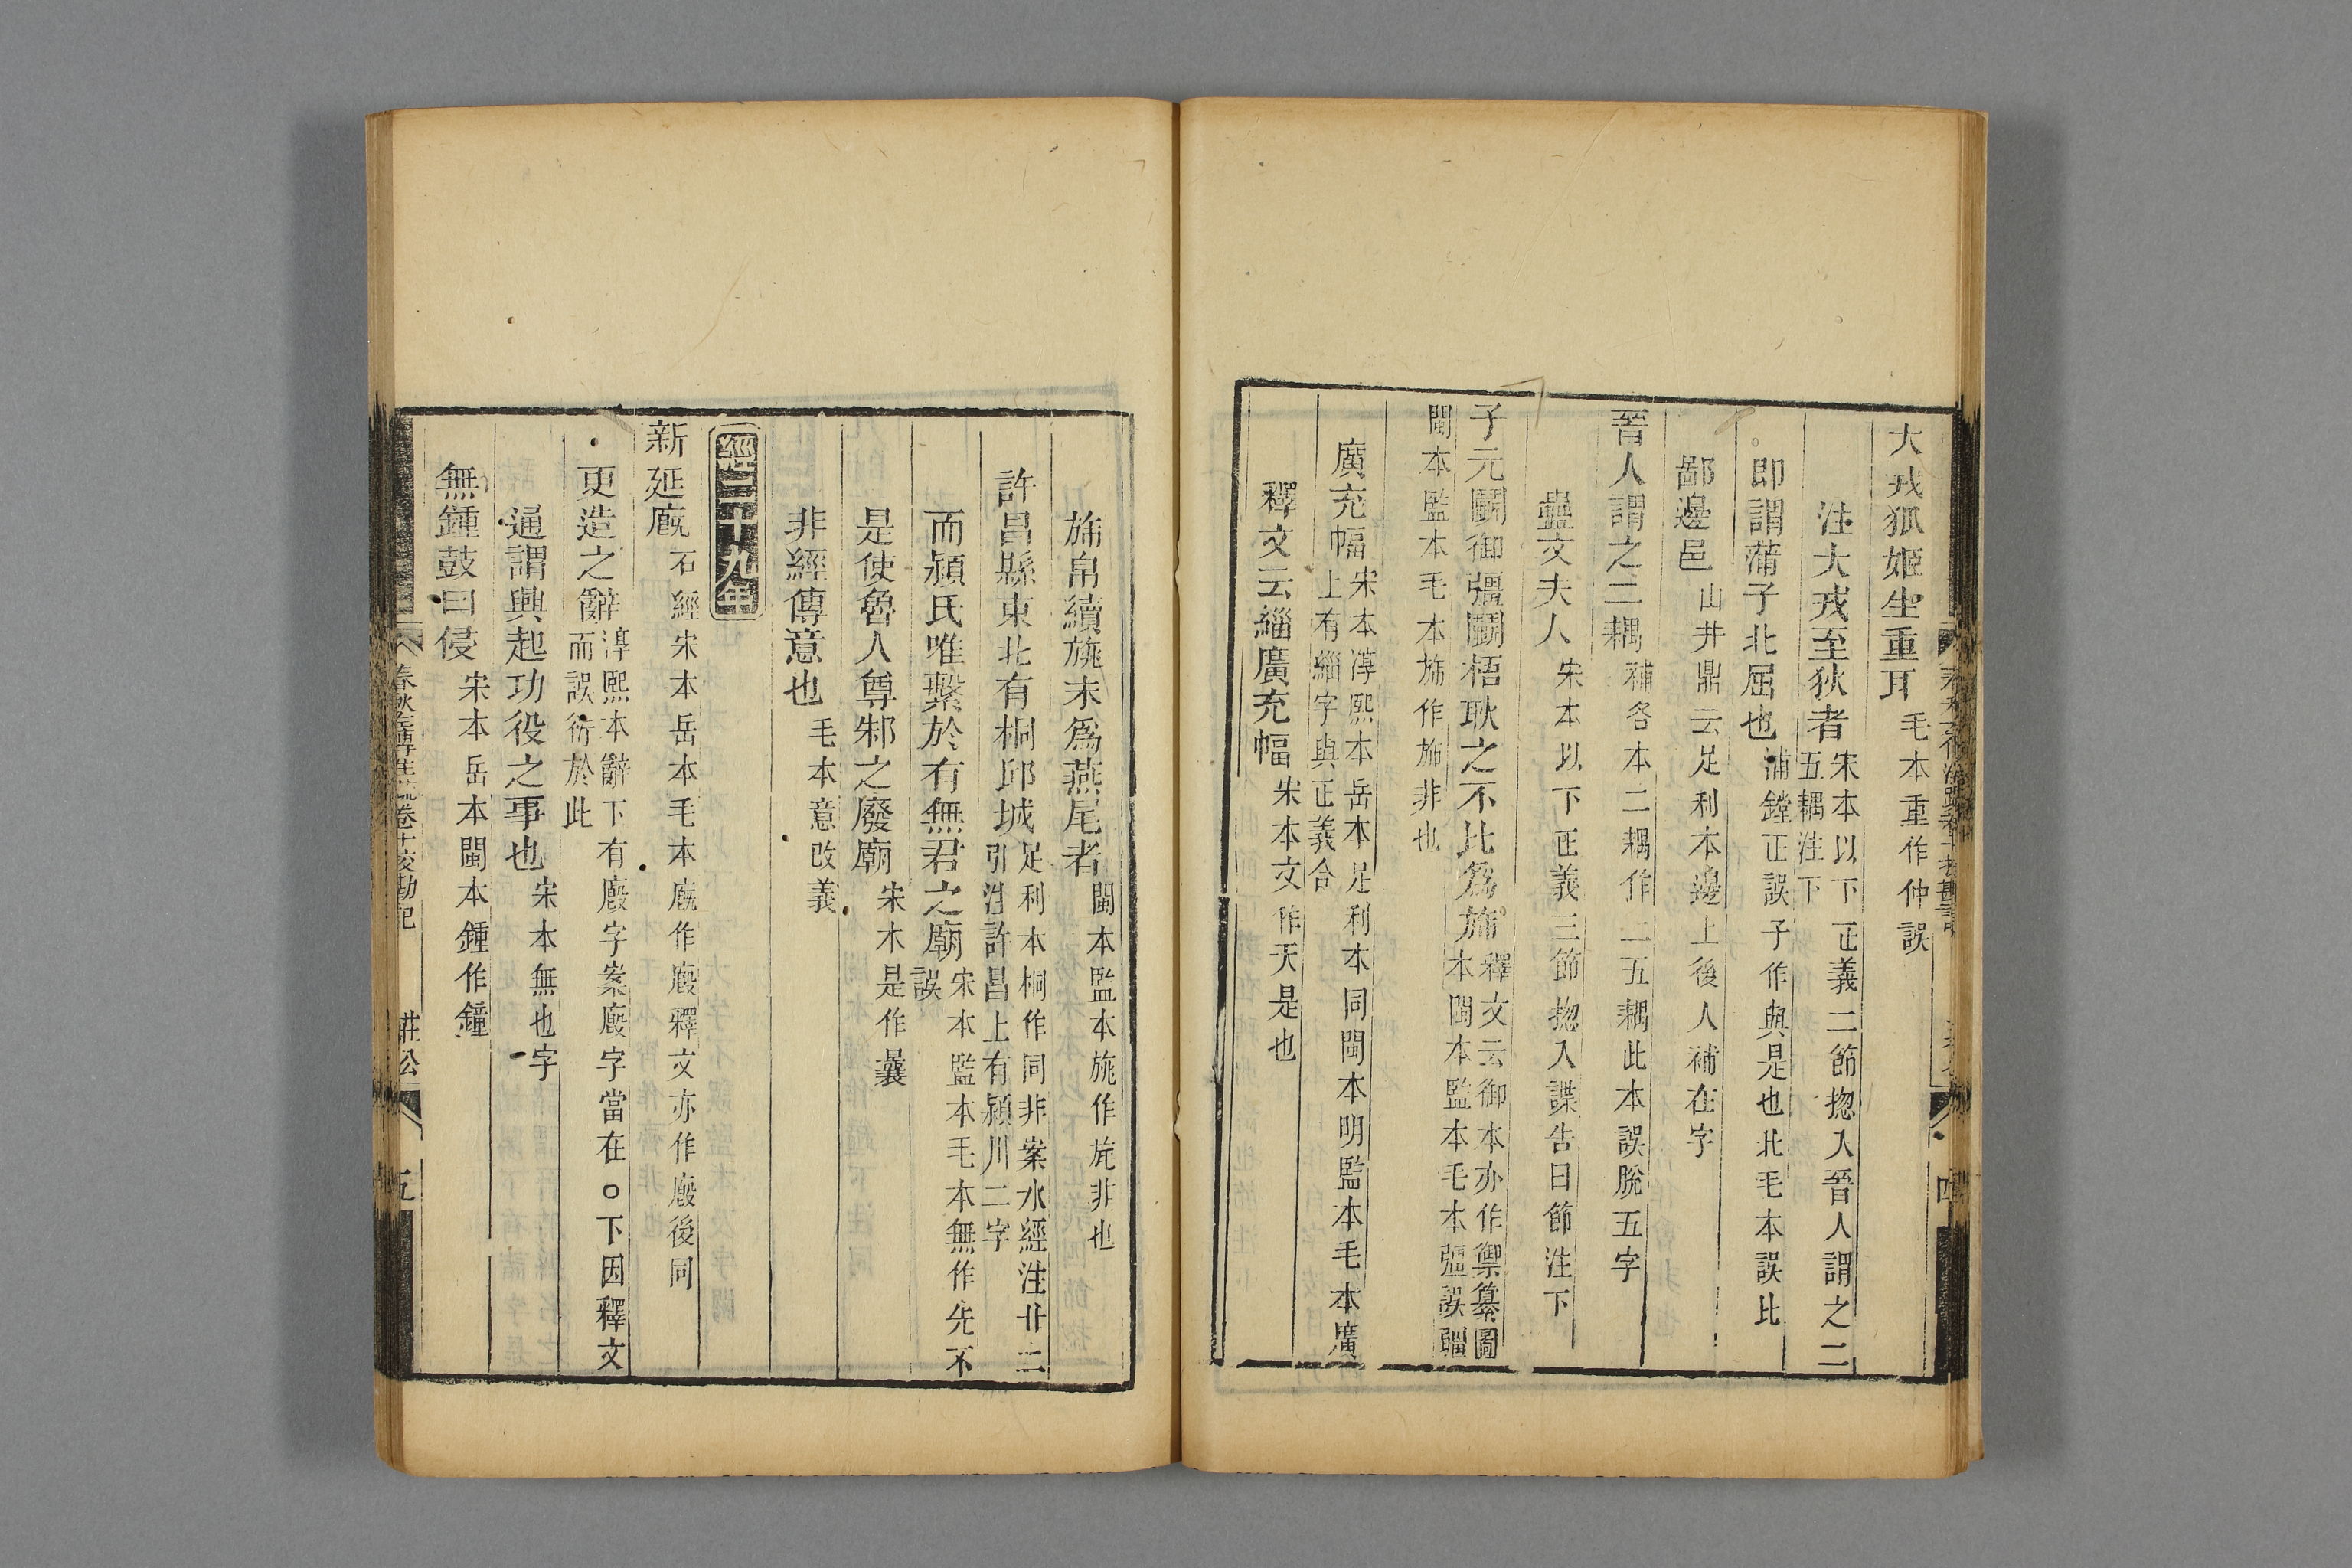 大戎狐姬生重耳毛本重作仲誤
注大戎至狄者宋本以下正義二節揔入晉人謂之二
五耦注下
即謂蒲子北屈也浦鏜正誤子作與是也北毛本誤比
鄙邊邑山井鼎云足利本邊上後人補在字
晉人謂之二耦補各本二耦作二五耦此本誤脫五字
蠱文夫人宋本以下正義三節揔入諜告曰節注下
子元鬭御彊鬭梧耿之不比爲旆釋文云御本亦作禦纂圖
本閩本監本毛本彊誤疆
閩本監本毛本旆作斾非也
廣充幅宋本淳熙本岳本足利本同閩本明監本毛本廣
上有緇字與正義合
釋文云緇廣充幅宋本文作天是也
旆帛續旐末爲燕尾者閩本監本旐作旄非也
許昌縣東北有桐邱城足利本桐作同非案水經注廿二
引注許昌上有潁川二字
而潁氏唯繫於有無君之廟宋本監本毛本無作先不
誤
是使魯人尊邾之廢廟宋本是作曩
非經傳意也毛本意改義
經二十九年
新延廄石經宋本岳本毛本廄作廏釋文亦作廏後同
更造之辭淳熙本辭下有廏字案廏字當在○下因釋文
而誤衍於此
通謂興起功役之事也宋本無也字
無鍾鼓曰侵宋本岳本閩本鍾作鐘
春秋左傳注疏卷十校勘記 莊公 五